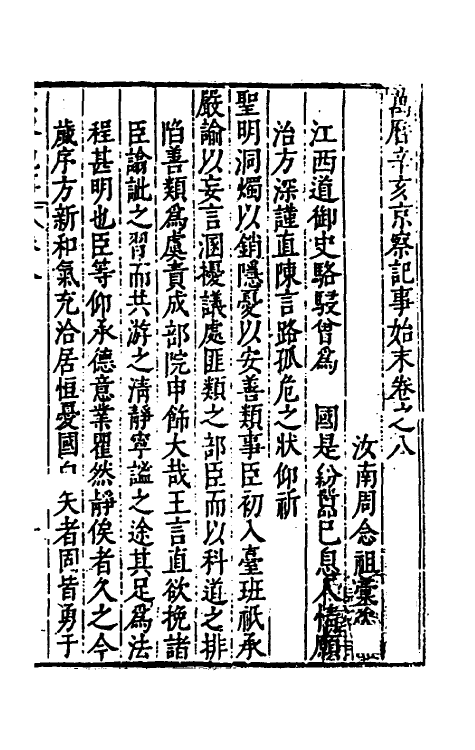 萬曆辛亥京察記事始末卷之八
汝南周念祖彙次
江西道御史駱駸曾爲 國是紛囂已息人情願
治方深謹直陳言路孤危之狀仰祈
聖明洞燭以銷隱憂以安善類事臣初入臺班祇承
嚴諭以妄言溷擾議處匪類之部臣而以科道之排
陷善類爲虞責成部院申飭大哉王言直欲挽諸
臣論訿之習而共游之清靜寧謐之途其足爲法
程甚明也臣等仰承德意業瞿然靜俟者久之今
歲序方新和氣充洽居恒憂國 矢者固皆勇于